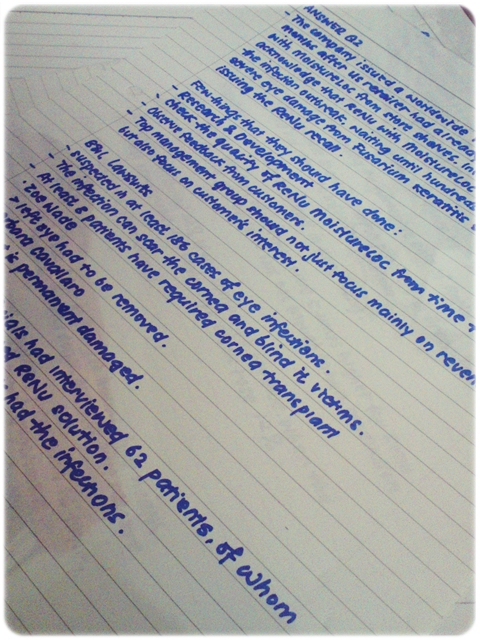 ANSWER Q2
- The company issued a worldwide
months after US repeater had alrea
with moistureloc from store shelves.
acknowledge that RENU with moistureloc
the infection outbreak. Waiting until hundred
severe eye damage from Fusarium keratitis
issuing the RENU recall.
Few things that they should have done:
- Research & Development
check the quality of RENU moistureloc from time
- Receive feedback from customer.
- Top management group should not just focus mainly on reven
but also focus on customers interest.
B&L Lawsuits
- suspected in at least 186 cases of eye infections.
- The infection can scar the cornea and blind it victims.
- At least 8 patients have required cornea transplant
Zoe Nadle
> left eye had to be removed.
bara Cavallaro
is permanent damaged.
cials had interviewed 62 patients, of whom
ed RENU solution.
had the infections.